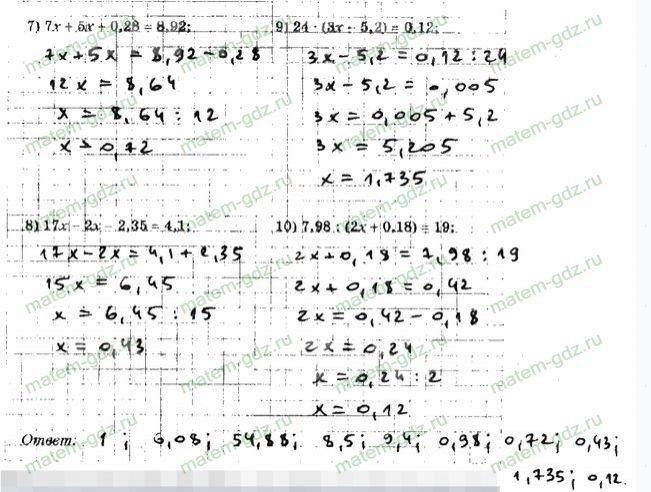 7) 7x + 5x + 0,28 = 8,92;
7x+5x = 8,92-0,28
12x = 8,64
x = 8,64 : 12
x = 0,72
8) 17x - 2x - 2,35 = 4,1;
17x-2x = 4,1+2,35
15x = 6,45
x = 6,45 : 15
x = 0,43
9) 24 · (3x - 5,2) = 0,12;
3x-5,2 = 0,12 : 24
3x-5,2 = 0,005
3x = 0,005+5,2
3x = 5,205
x = 1,735
10) 7,98 : (2x + 0,18) = 19;
2x+0,18 = 7,98 : 19
2x+0,18 = 0,42
2x = 0,42-0,18
2x = 0,24
x = 0,24 : 2
x = 0,12
Ответ: 1; 6,08; 54,88; 8,5; 9,4; 0,98; 0,72; 0,43;
1,735; 0,12.
matem-gdz.ru